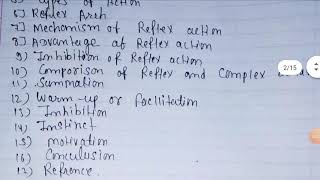 5) Types of Action
6) Reflex Arch
7) Mechanism of Reflex action
8) Advantage of Reflex action
9) Inhibition of Reflex action
10) Comparison of Reflex and Complex
11) Summation
12) Warm-up or Facilitation
13) Inhibition
14) Instinct
15) motivation
16) Conculusion
17) Refrence.
2/15